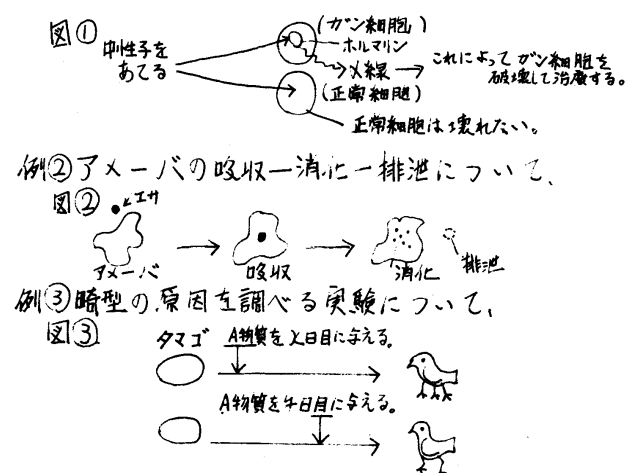 図①
中性子を
あてる
(ガン細胞)
ホルマリン
〆線
これによってガン細胞を
破壊して治療する。
(正常細胞)
正常細胞は壊れたい。
例②アメーバの吸収ー消化ー排泄について、
図②
エサ
アメーバ
吸収
消化
排泄
例③畸型の原因を調べる実験について、
図③
タマゴ
A物質を〆日目に与える。
A物質を4日目に与える。